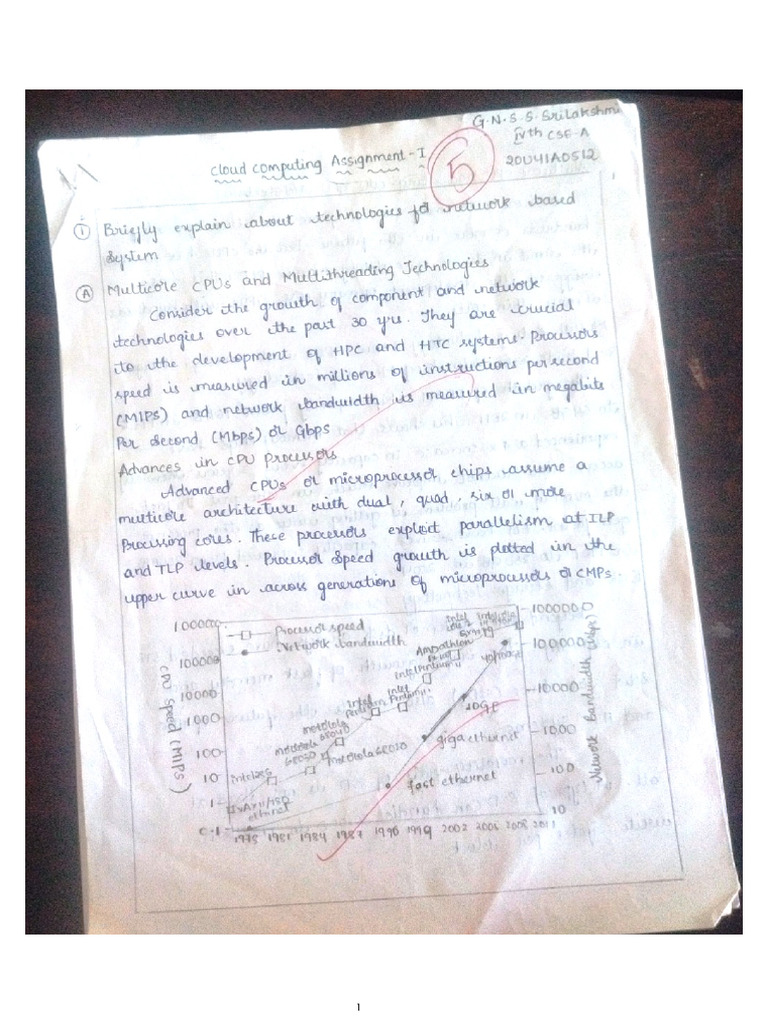 G.N.S.S. Srilakshmi
IVth CSE-A
20U41A0512
Cloud Computing Assignment-I
5
1 Briefly explain about technologies for network based
System
A Multicore CPUs and Multithreading Technologies
Consider the growth of component and network
technologies over the past 30 yrs. They are crucial
to the development of HPC and HTC systems. Processors
speed is measured in millions of instructions per second
(MIPS) and network bandwidth is measured in megabits
Per Second (Mbps) or Gbps
Advances in CPU Processors
Advanced CPUs or microprocessor chips assume a
multicore architecture with dual, quad, six or more
Processing cores. These processors exploit parallelism at ILP
and TLP levels. Processor Speed growth is plotted in the
upper curve in across generations of microprocessors or CMPs.
Processor speed
Network bandwidth
CPU Speed (MIPS)
1000000
100000
10000
1000
100
10
1
0.1
Intel 286
Motorola
Motorola
Motorola 68030
Intel
Pentium
Intel
Intel Pentium
Intel
40
10GE
giga ethernet
fast ethernet
ethernet
1000000
100,000
10000
1000
100
10
Network Bandwidth
1978 1981 1984 1987 1990 1999 2002 2008 2011
1